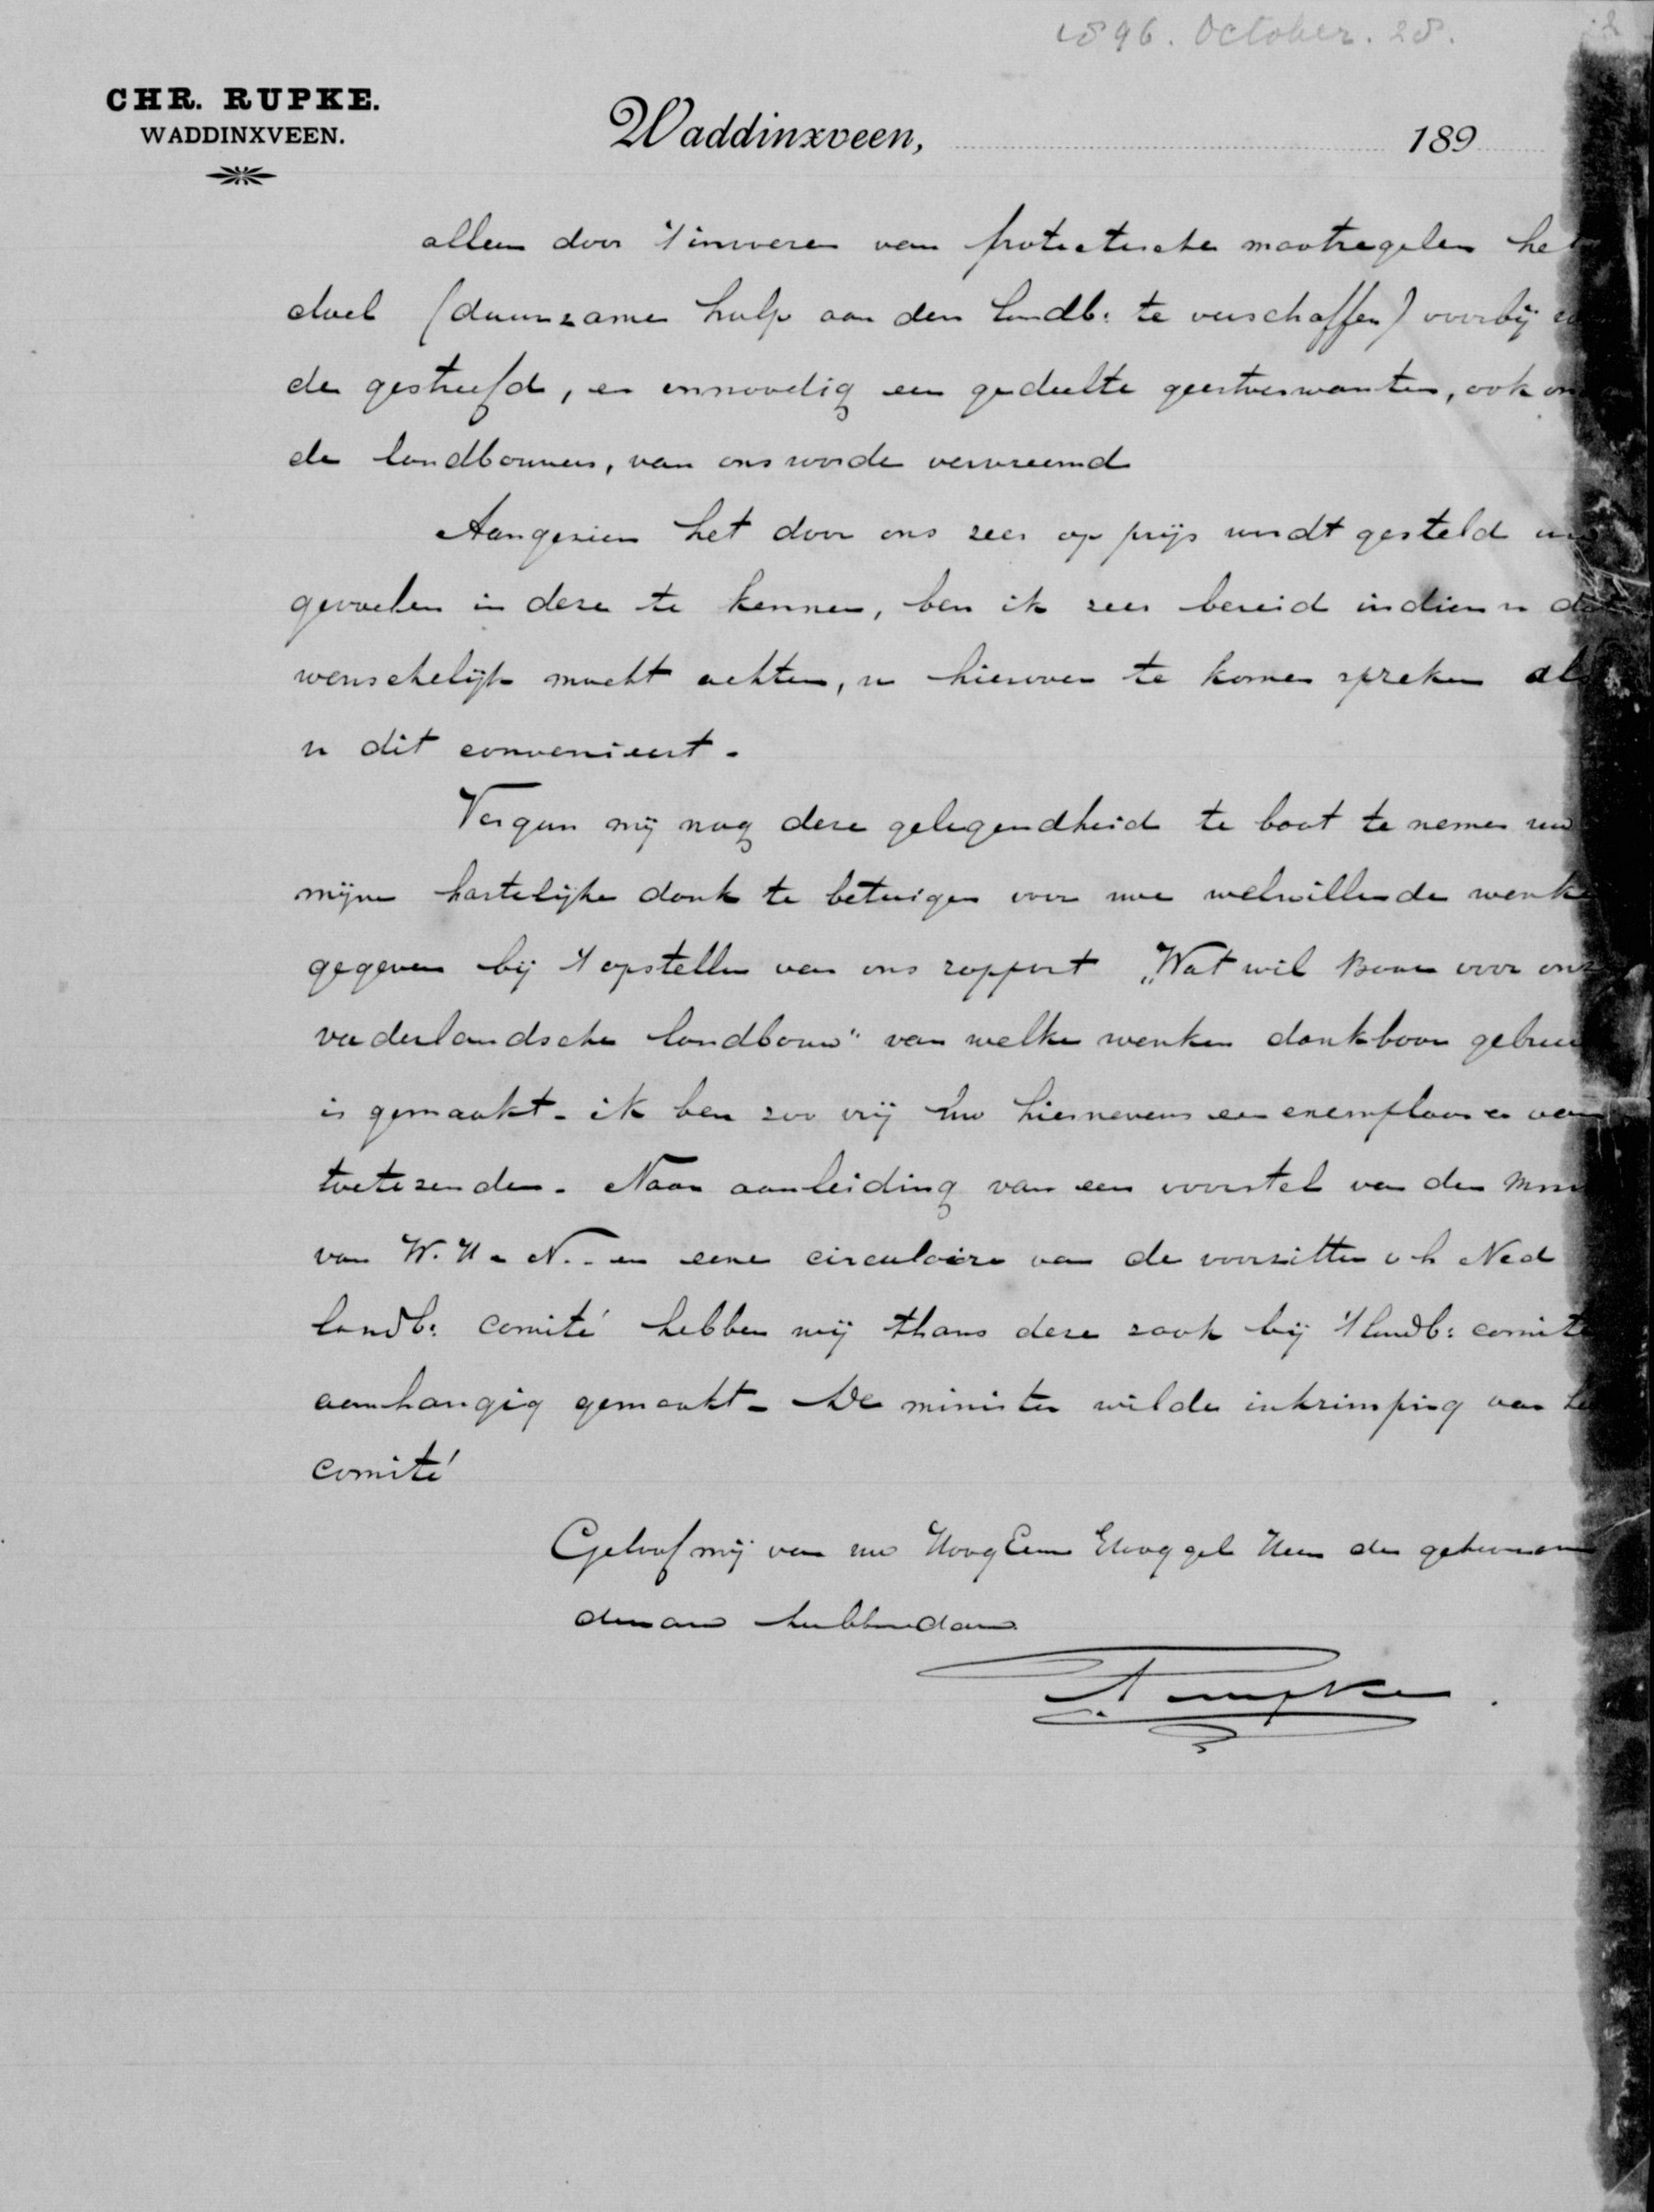 1896. October. 28.
CHR. RUPKE.
WADDINXVEEN.
Waddinxveen, 189
alleen door 't invoeren van protectische maatregelen het
doel (duurzame hulp aan den landb: te verschaffen) voorbij
de gestreefd, en onnoodig een gedeelte geestverwanten, ook on
de landbouwers, van ons worde vervreemd
Aangezien het door ons zeer op prijs wordt gesteld uw
gevoelen in deze te kennen, ben ik zeer bereid indien u dit
wenschelijk mocht achten, u hierover te komen spreken als
u dit convenieert.
Vergun mij nog deze gelegendheid te baat te nemen uw
mijne hartelijke dank te betuigen voor uwe welwillende wenke
gegeven bij 't opstellen van ons rapport „Wat wil Boaz voor onze
vaderlandsche landbouw" van welke wenken dankbaar gebrui
is gemaakt. ik ben zoo vrij Uw hiernevens een exemplaar er van
toetezenden. Naar aanleiding van een voorstel van den Min
van W. H. N. en eene circulaire van de voorzitter v h Ned
landb: comité hebben wij thans deze zaak bij 't landb: comité
aanhangig gemaakt. De minister wilde inkrimping van he
comité
Geloof mij van uw HoogEerw Hooggel Heer de
dienaar hebbend
Rupke.